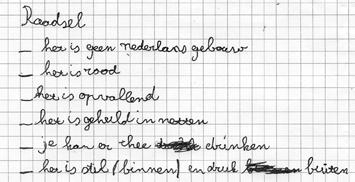 Raadsel
_ het is geen nederlans gebouw
_ het is rood
_ het is opvallend
_ het is gehuld in netten
_ je kan er thee drinken
_ het is stil (binnen) en druk buiten